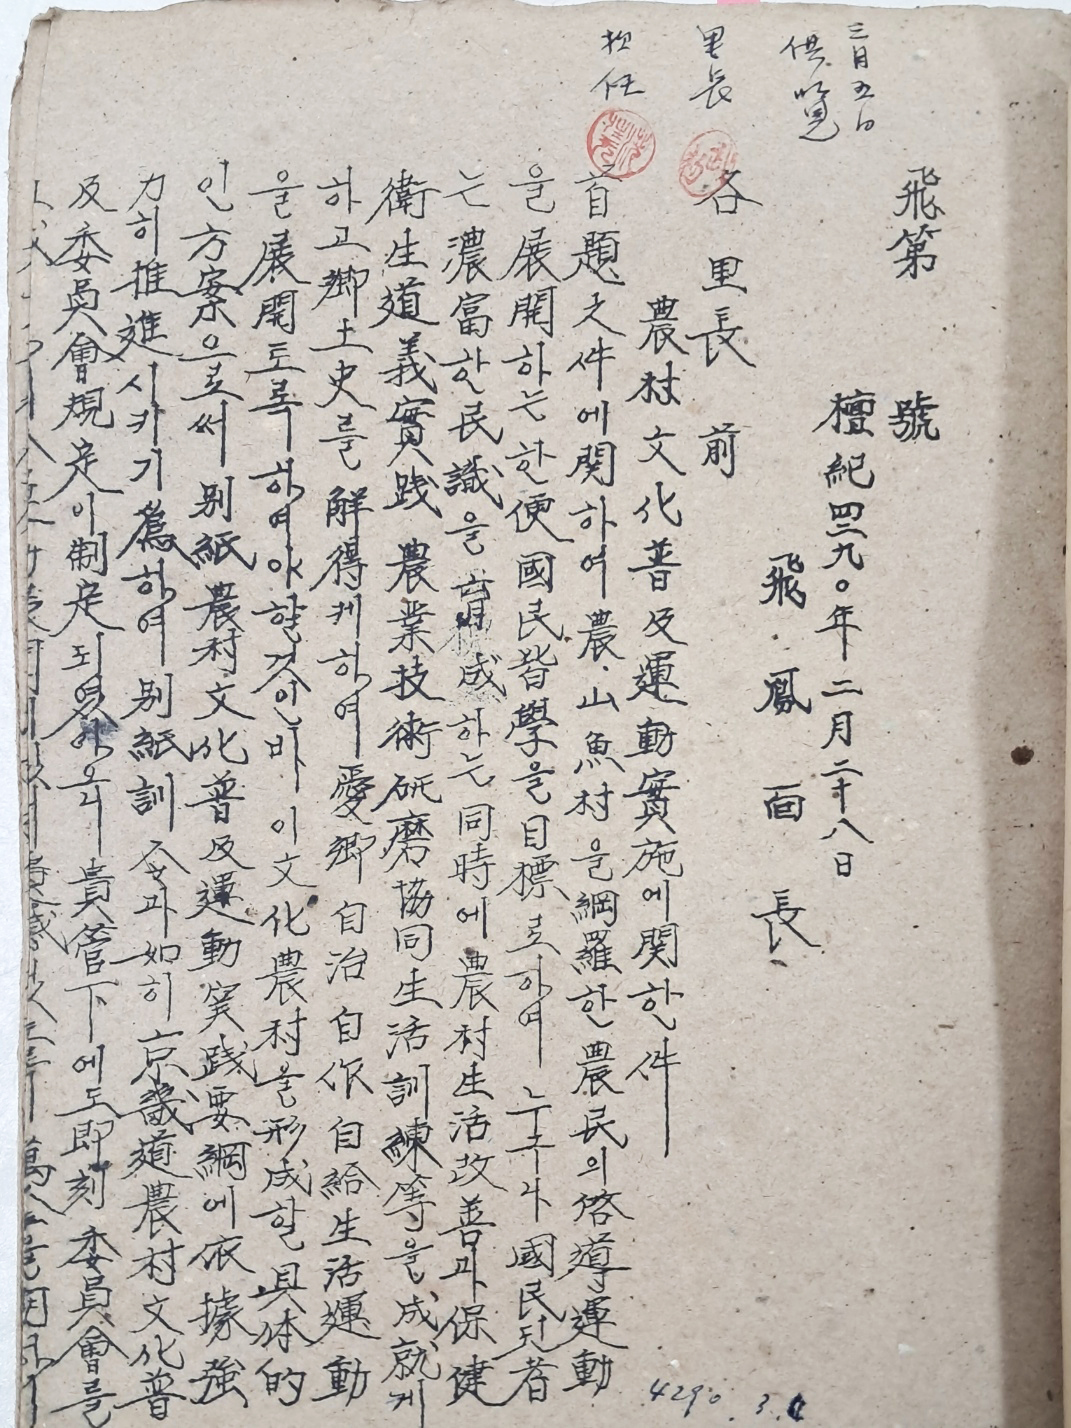 三月五日
供覽
里長
担任
飛第 號
檀紀四二九〇年二月二十八日
飛鳳面長
各里長 前
農村文化普及運動實施에関한件
首題之件에関하여農·山魚村을綱羅한農民의啓導運動
을展開하는한便國民皆學을目標로하여 누구나國民된者
는濃富한民識을 成하는同時에農村生活改善과保健
衛生道義實践 農業技術硏磨協同生活訓練等을成就케
하고鄉土史를解得케하여 愛鄉自治自作自給生活運動
을展開도록하여야할것인바 이文化農村을形成할具体的
인方案으로써別紙農村文化普及運動実践要綱에依據強
力히推進시키기爲하여別紙訓令과如히京畿道農村文化普
及委員會規定이制定되였아오니貴管下에도即刻委員會를
4290. 3.